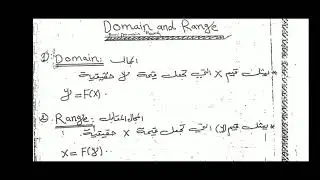 Domain and Range
1) Domain: المجال
* يمثل قيم x التي تجعل قيمة y حقيقية
y = F(x).
2) Range: المجال المقابل
* يمثل قيم (y) التي تجعل قيمة x حقيقية.
x = F(y)..